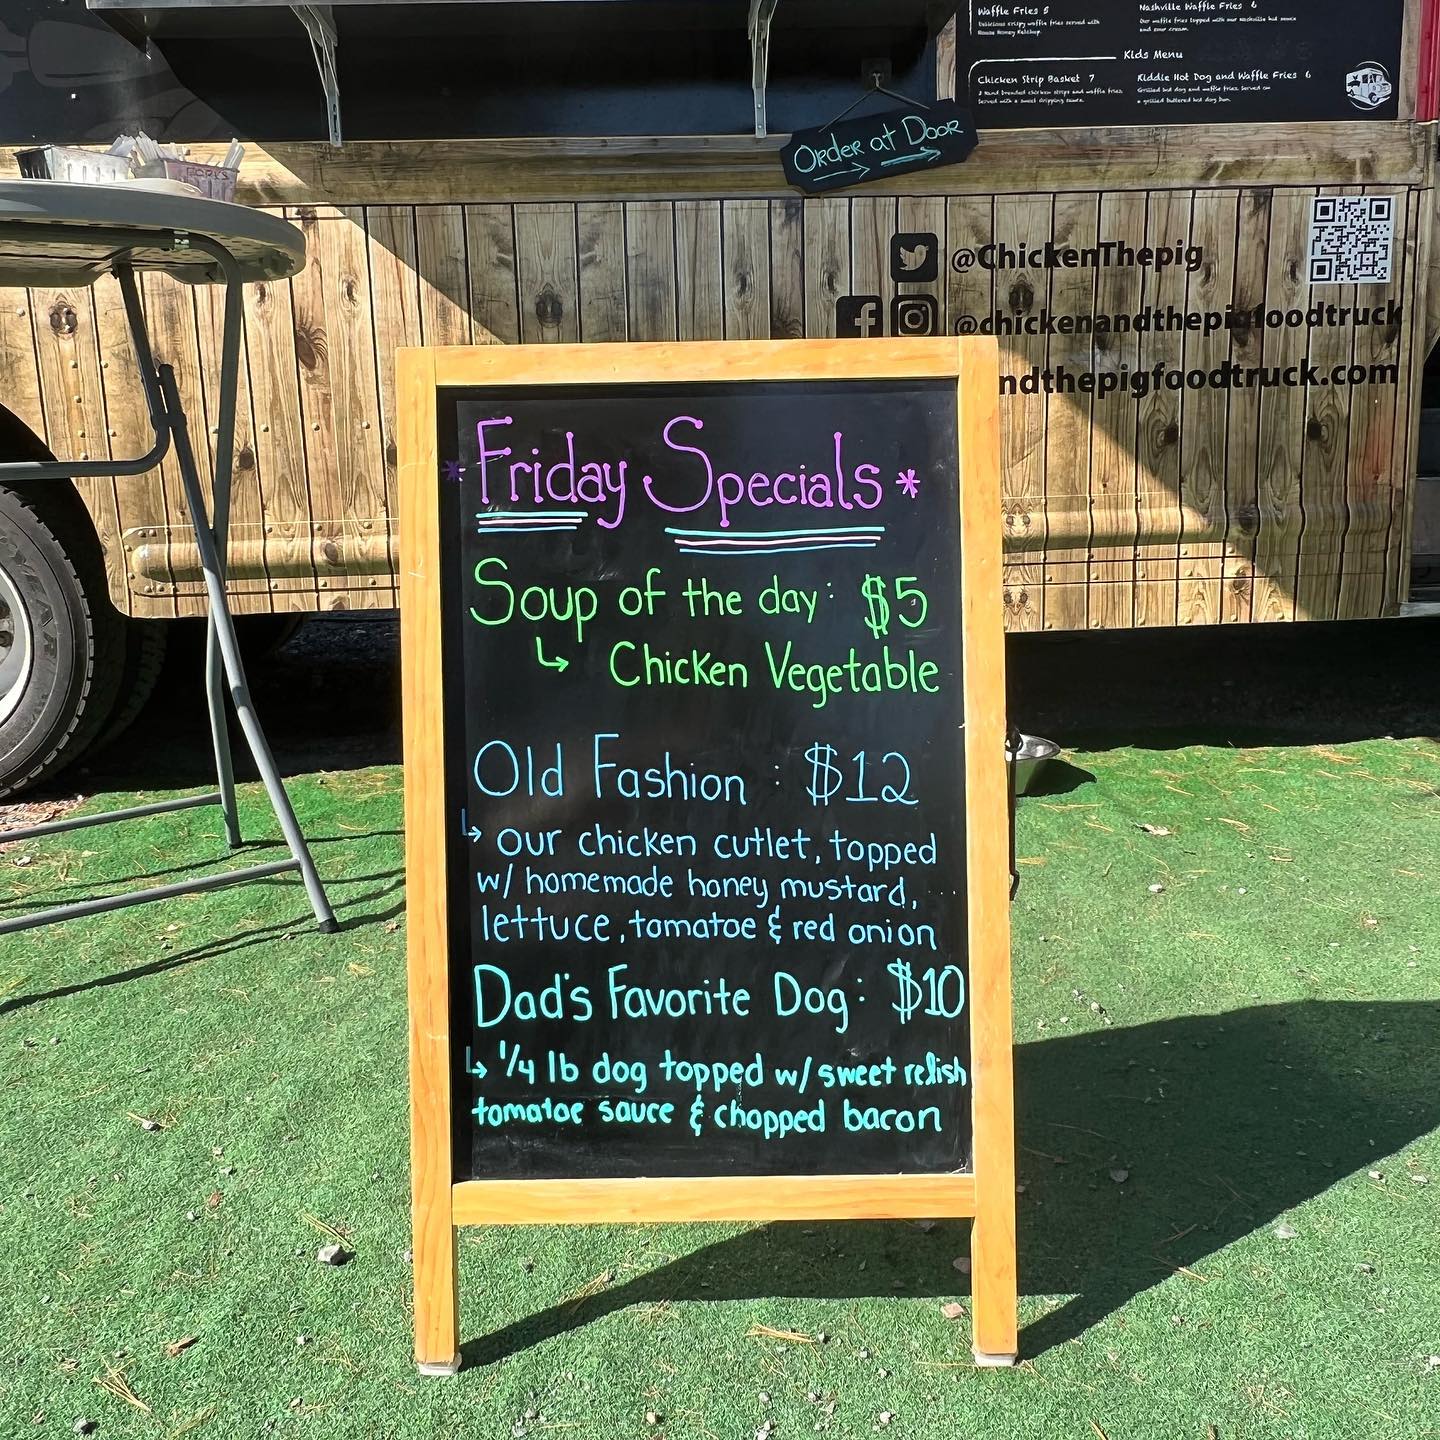 Waffle Fries 5
Delicious crispy waffle fries served with
House Honey Ketchup.
Nashville Waffle Fries 6
Our waffle fries topped with our nashville hot sauce
and sour cream.
Kids Menu
Chicken Strip Basket 7
2 Hand breaded chicken strips and waffle fries
Served with a sweet dipping sauce.
Kiddie Hot Dog and Waffle Fries 6
Grilled hot dog and waffle fries. Served on
a grilled buttered hot dog bun.
Order at Door
FORKS
@ChickenThepig
@chickenandthepigfoodtruck
ndthepigfoodtruck.com
* Friday Specials *
Soup of the day: $5
↳ Chicken Vegetable
Old Fashion : $12
↳ our chicken cutlet, topped
w/ homemade honey mustard,
lettuce, tomatoe & red onion
Dad's Favorite Dog: $10
↳ 1/4 lb dog topped w/ sweet relish
tomatoe sauce & chopped bacon